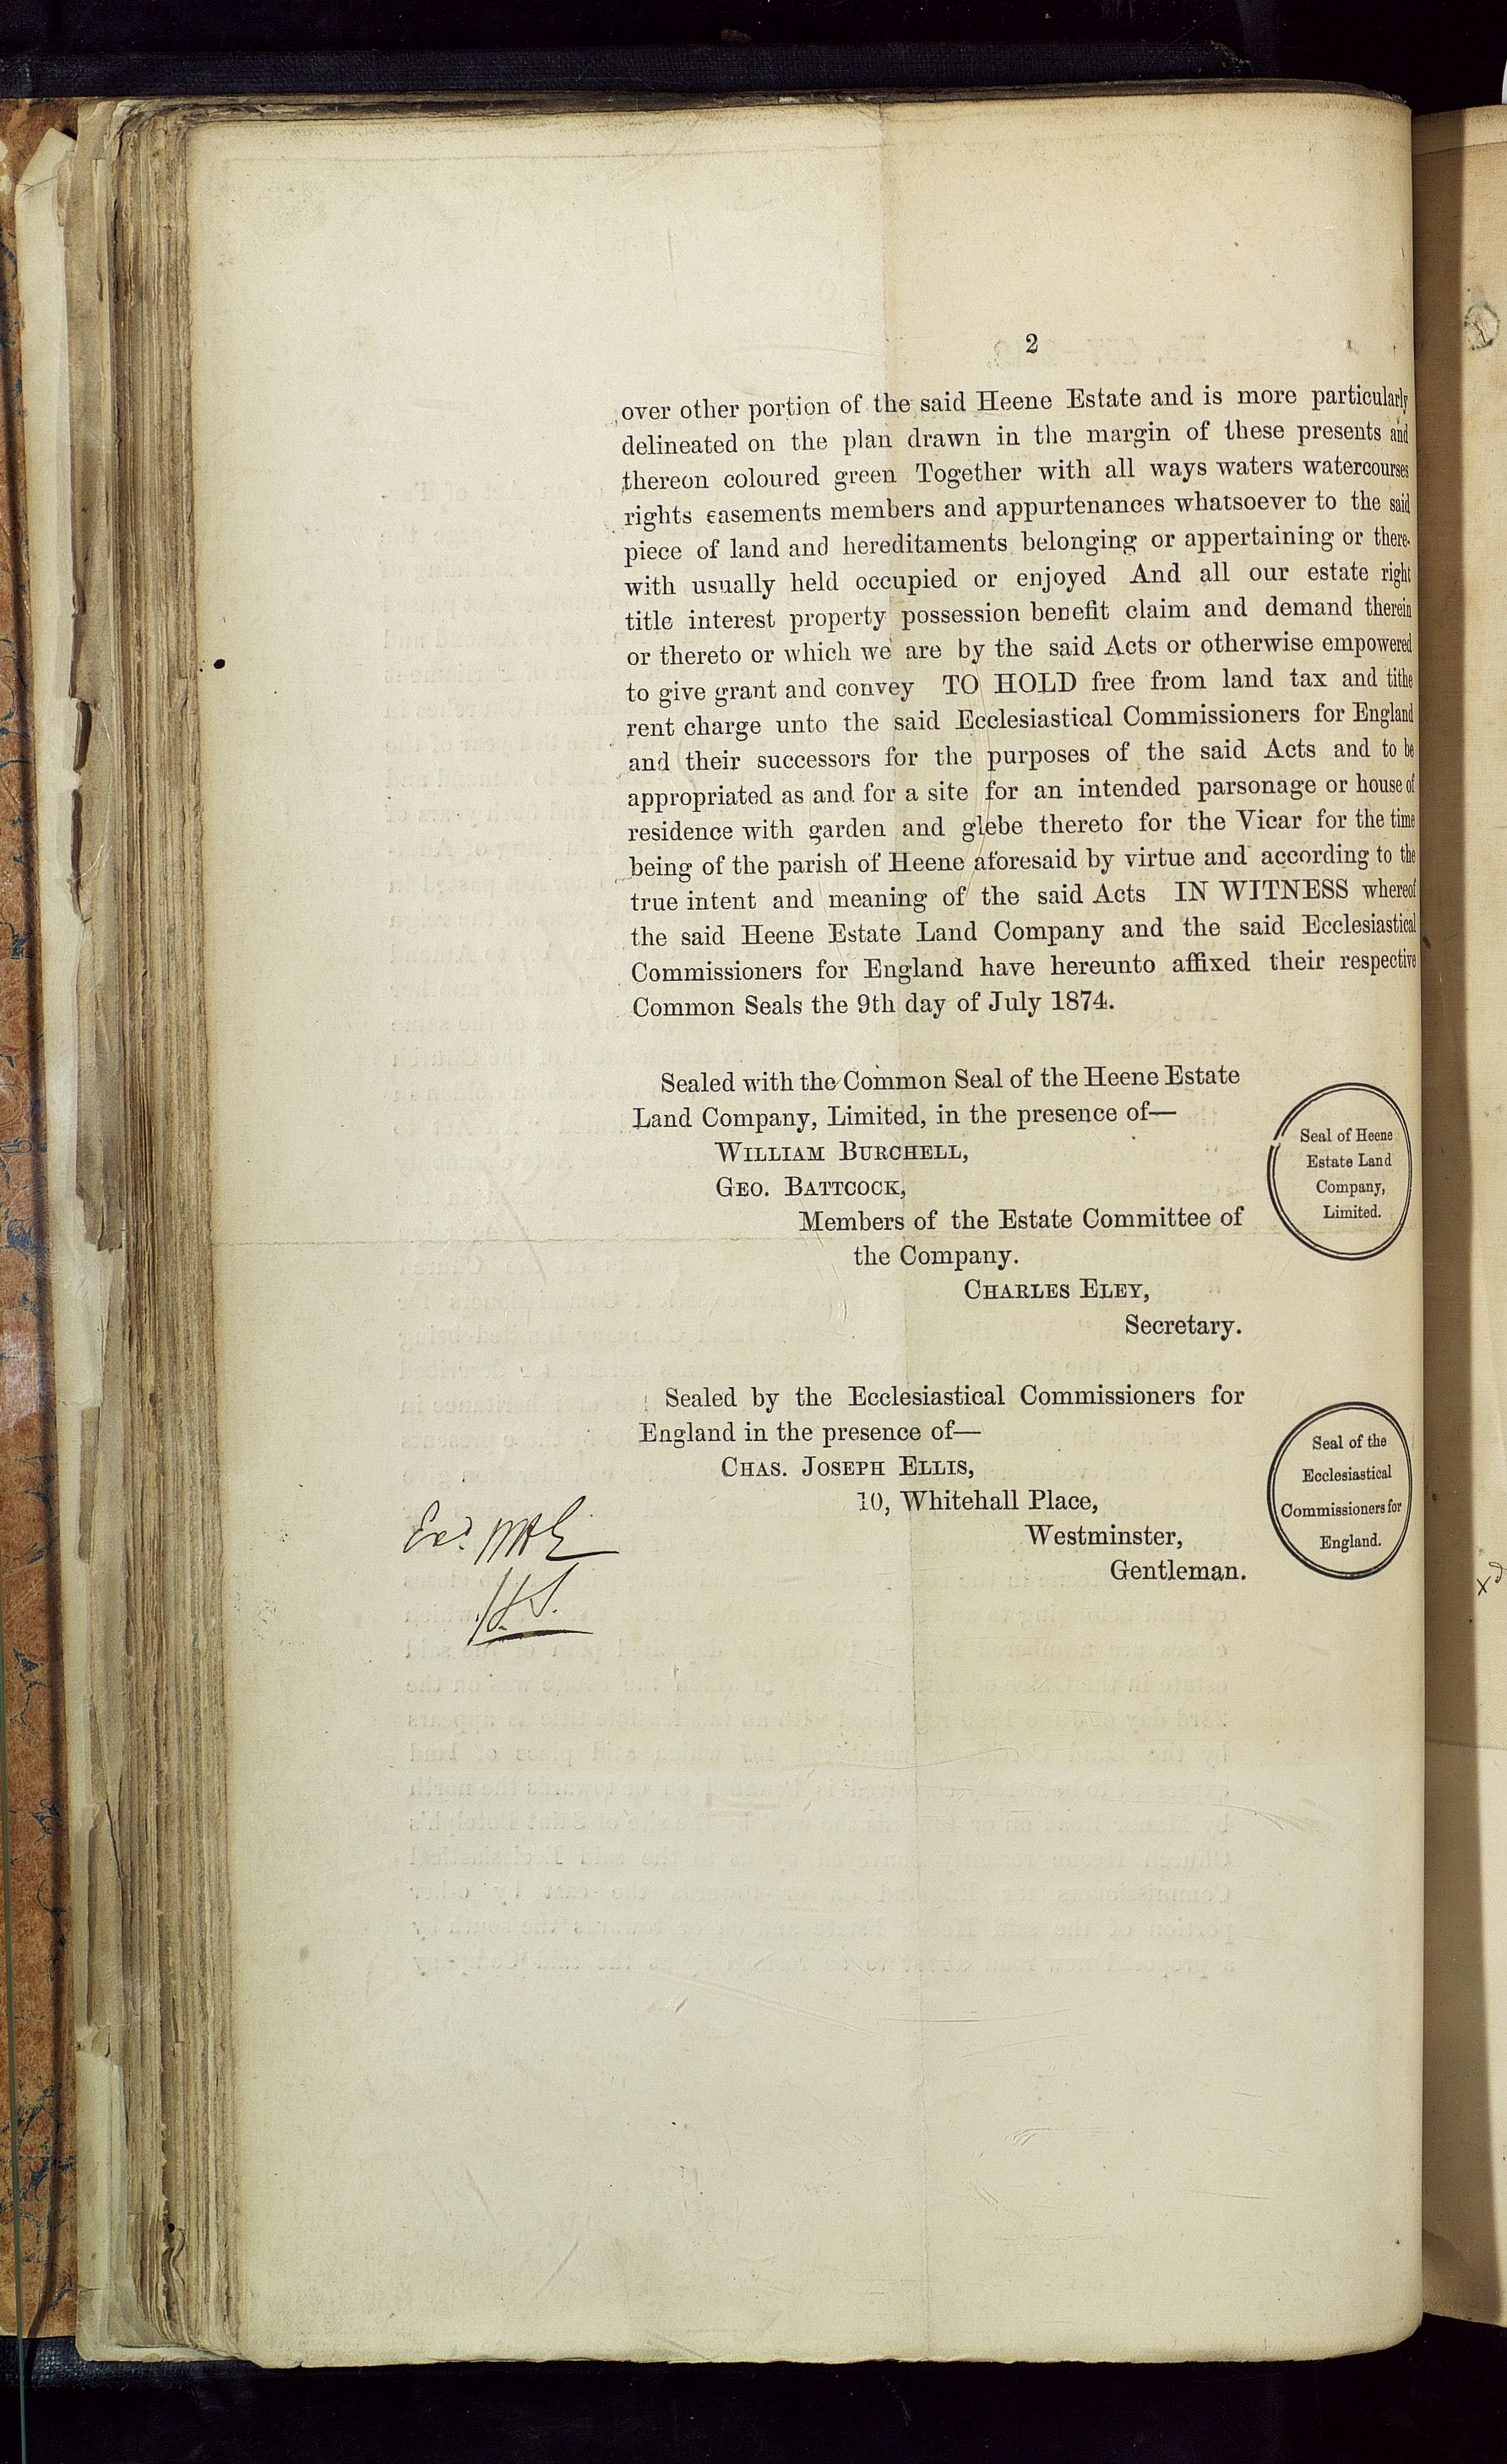 2
over other portion of the said Heene Estate and is more particularly
delineated on the plan drawn in the margin of these presents and
thereon coloured green Together with all ways waters watercourses
rights easements members and appurtenances whatsoever to the said
piece of land and hereditaments belonging or appertaining or there-
with usually held occupied or enjoyed And all our estate right
title interest property possession benefit claim and demand therein
or thereto or which we are by the said Acts or otherwise empowered
to give grant and convey TO HOLD free from land tax and tithe
rent charge unto the said Ecclesiastical Commissioners for England
and their successors for the purposes of the said Acts and to be
appropriated as and for a site for an intended parsonage or house of
residence with garden and glebe thereto for the Vicar for the time
being of the parish of Heene aforesaid by virtue and according to the
true intent and meaning of the said Acts IN WITNESS whereof
the said Heene Estate Land Company and the said Ecclesiastical
Commissioners for England have hereunto affixed their respective
Common Seals the 9th day of July 1874.
Sealed with the Common Seal of the Heene Estate
Land Company, Limited, in the presence of—
WILLIAM BURCHELL,
GEO. BATTCOCK,
Members of the Estate Committee of
the Company.
CHARLES ELEY,
Secretary.
Seal of Heene
Estate Land
Company,
Limited.
Sealed by the Ecclesiastical Commissioners for
England in the presence of—
CHAS. JOSEPH ELLIS,
10, Whitehall Place,
Westminster,
Gentleman.
Seal of the
Ecclesiastical
Commissioners for
England.